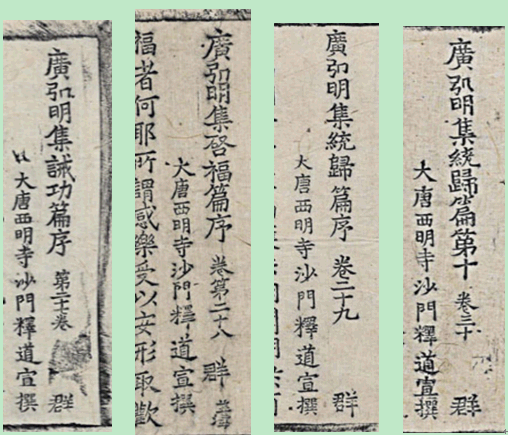 廣弘明集誡功篇序 第二十卷 群
大唐西明寺沙門釋道宣撰
廣弘明集啓福篇序 卷第二十八 群
大唐西明寺沙門釋道宣撰
福者何耶所謂感樂受以安形取歡
廣弘明集統歸篇序 卷二十九 群
大唐西明寺沙門釋道宣撰
廣弘明集統歸篇第十 卷三十 群
大唐西明寺沙門釋道宣撰